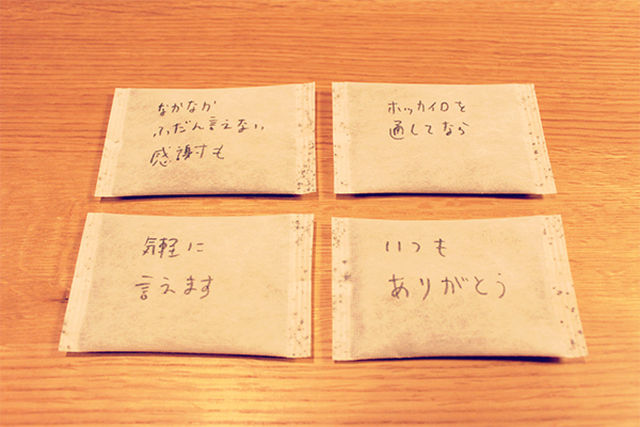 なかなか
ふだん言えない
感謝も
ホッカイロを
通してなら
気軽に
言えます
いつも
ありがとう